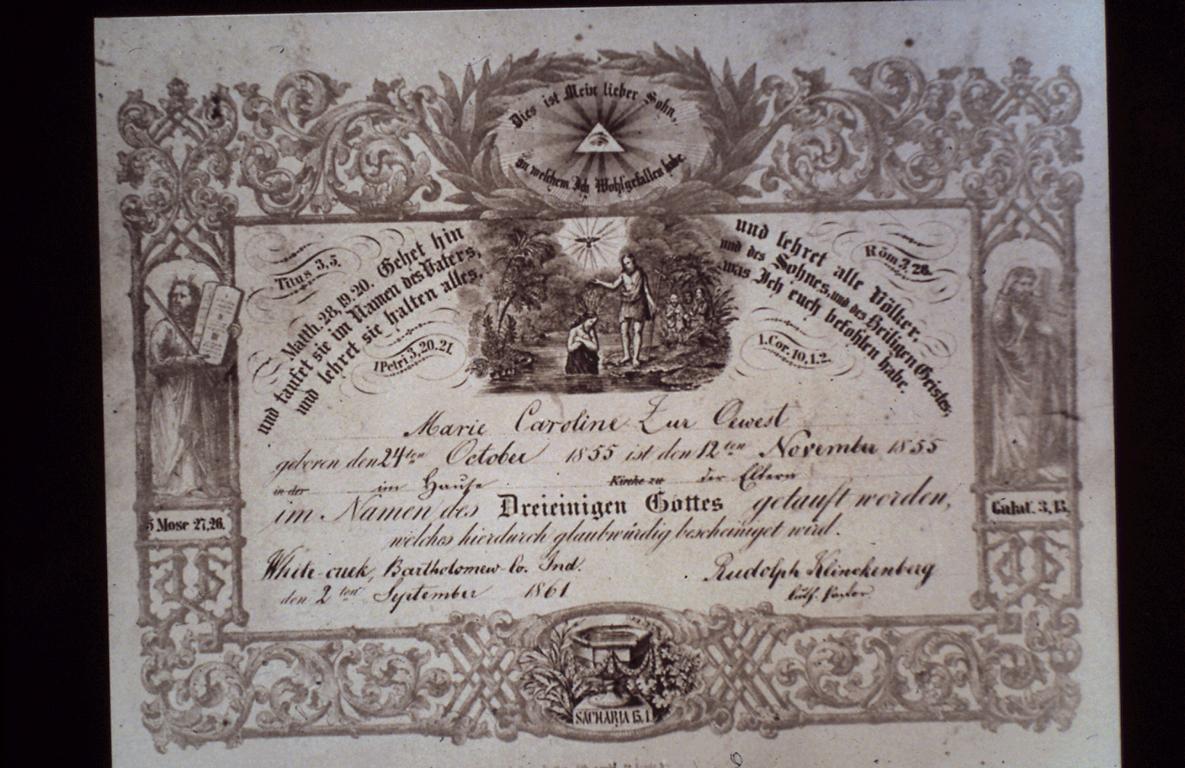 Dies ist Mein lieber Sohn,
an welchem Ich Wohlgefallen habe.
Titus 3,5.
Röm. 3, 28.
Matth. 28, 19. 20. Gehet hin und lehret alle Völker,
und taufet sie im Namen des Vaters, und des Sohnes, und des Heiligen Geistes,
und lehret sie halten alles, was Ich euch befohlen habe.
1 Petri 3, 20. 21.
1. Cor. 10, 1. 2.
Marie Caroline Zur Oewest
geboren den 24ten October 1855 ist den 12ten November 1855
in der im Hause Kirche zu der Eltern
im Namen des Dreieinigen Gottes getauft worden,
welches hierdurch glaubwürdig bescheiniget wird.
White-creek, Bartholomew Co. Ind.
Rudolph Klinckenberg
den 2ten September 1861
luth. Pastor
5 Mose 27, 26.
Galat. 3, 13.
SACHARJA 13, 1.